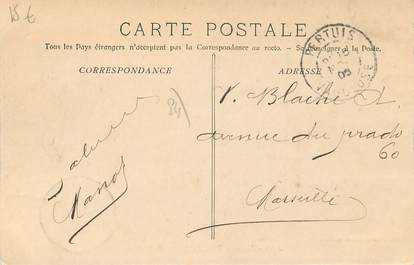 15 €
CARTE POSTALE
Tous les Pays étrangers n'acceptent pas la Correspondance au recto. - Se renseigner à la Poste.
CORRESPONDANCE
ADRESSE
PERTUIS
VAUCLUSE
84
V. Blache
avenue du prado
60
Marseille